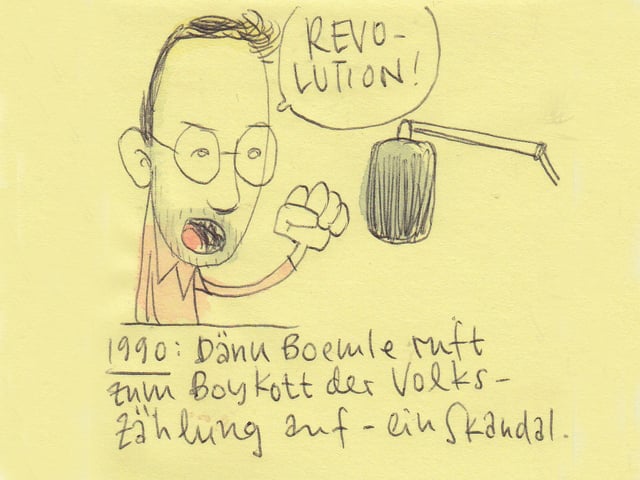 REVO-
LUTION!
1990: Dänu Boemle ruft
zum Boykott der Volks-
Zählung auf - ein Skandal.